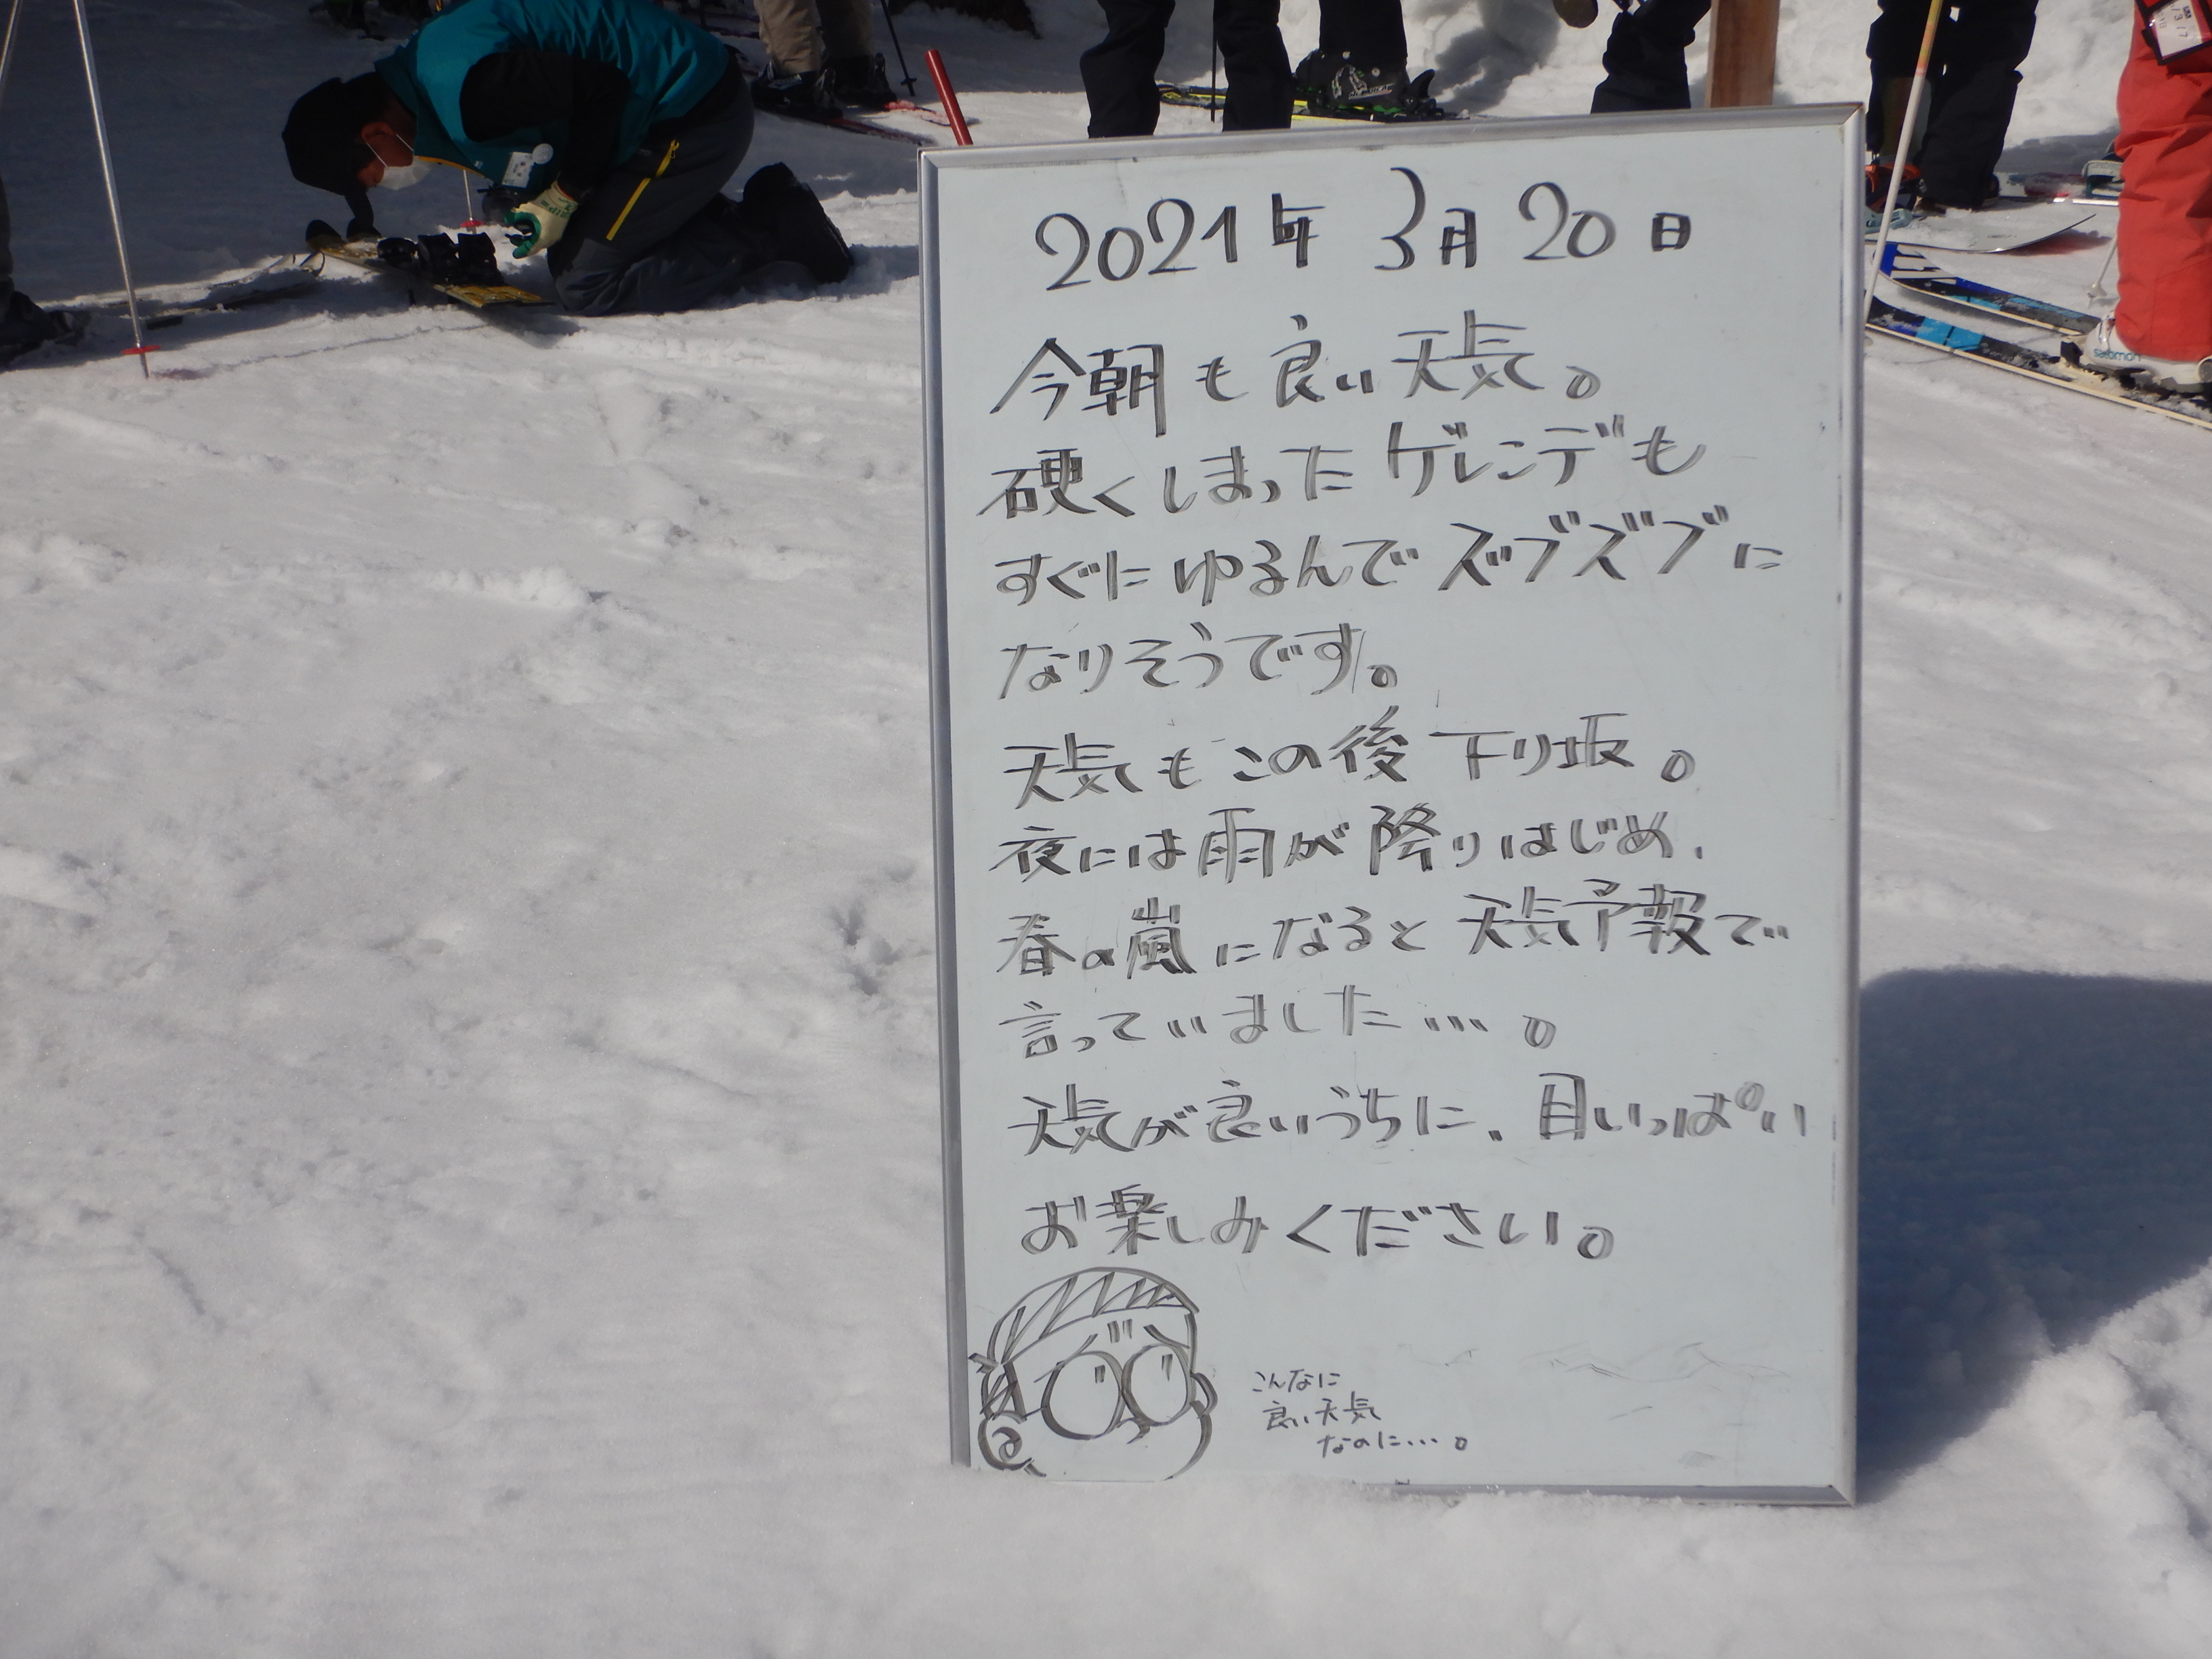 2021年 3月 20日
今朝も良い天気。
硬くしまったゲレンデも
すぐにゆるんでズブズブに
なりそうです。
天気もこの後下り坂。
夜には雨が降りはじめ、
春の嵐になると天気予報で
言っていました…。
天気が良いうちに、目いっぱい
お楽しみください。
こんなに
良い天気
なのに…。
salomon